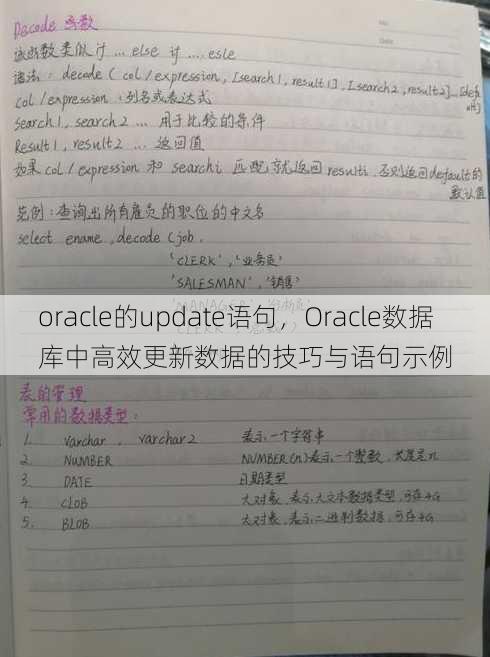 Decode 函数
该函数类似 if ... else if .... esle
语法: decode ( col / expression, [search1, result1], [search2, result2]...[default])
col / expression : 列名或表达式
search1, search2 ... 用于比较的条件
Result1, result2 ... 返回值
如果 col / expression 和 searchi 匹配就返回 resulti, 否则返回 default 的默认值
范例: 查询出所有雇员的职位的中文名
select ename, decode (job,
'CLERK', '业务员'
'SALESMAN', '销售'
oracle的update语句，Oracle数据
库中高效更新数据的技巧与语句示例
表的管理
常用的数据类型:
1. varchar, varchar2 表示一个字符串
2. NUMBER NUMBER(n)表示一个整数, 长度是n
3. DATE 日期类型
4. CLOB 大对象, 表示大文本数据类型, 可存4G
5. BLOB 大对象, 表示二进制数据, 可存4G